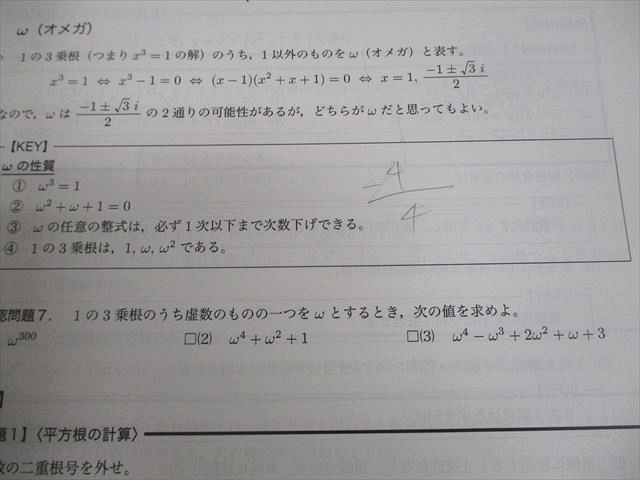 ω（オメガ）
1の3乗根（つまり x³ = 1 の解）のうち，1以外のものを ω（オメガ）と表す。
x³ = 1 ⇔ x³ − 1 = 0 ⇔ (x−1)(x² + x + 1) = 0 ⇔ x = 1, (−1±√3 i)/2
なので，ω は (−1±√3 i)/2 の2通りの可能性があるが，どちらが ω だと思ってもよい。
【KEY】
ω の性質
① ω³ = 1
② ω² + ω + 1 = 0
③ ω の任意の整式は，必ず1次以下まで次数下げできる。
④ 1の3乗根は，1, ω, ω² である。
認問題7． 1の3乗根のうち虚数のものの一つを ω とするとき，次の値を求めよ。
ω³⁰⁰ □(2) ω⁴ + ω² + 1 □(3) ω⁴ − ω³ + 2ω² + ω + 3
題1】〈平方根の計算〉
数の二重根号を外せ。